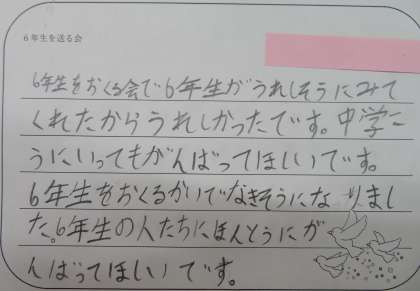 6年生を送る会
6年生をおくる会で6年生がうれしそうにみて
くれたからうれしかったです。中学こ
うにいってもがんばってほしいです。
6年生をおくるかいでなきそうになりまし
た。6年生の人たちにほんとうにが
んばってほしいです。